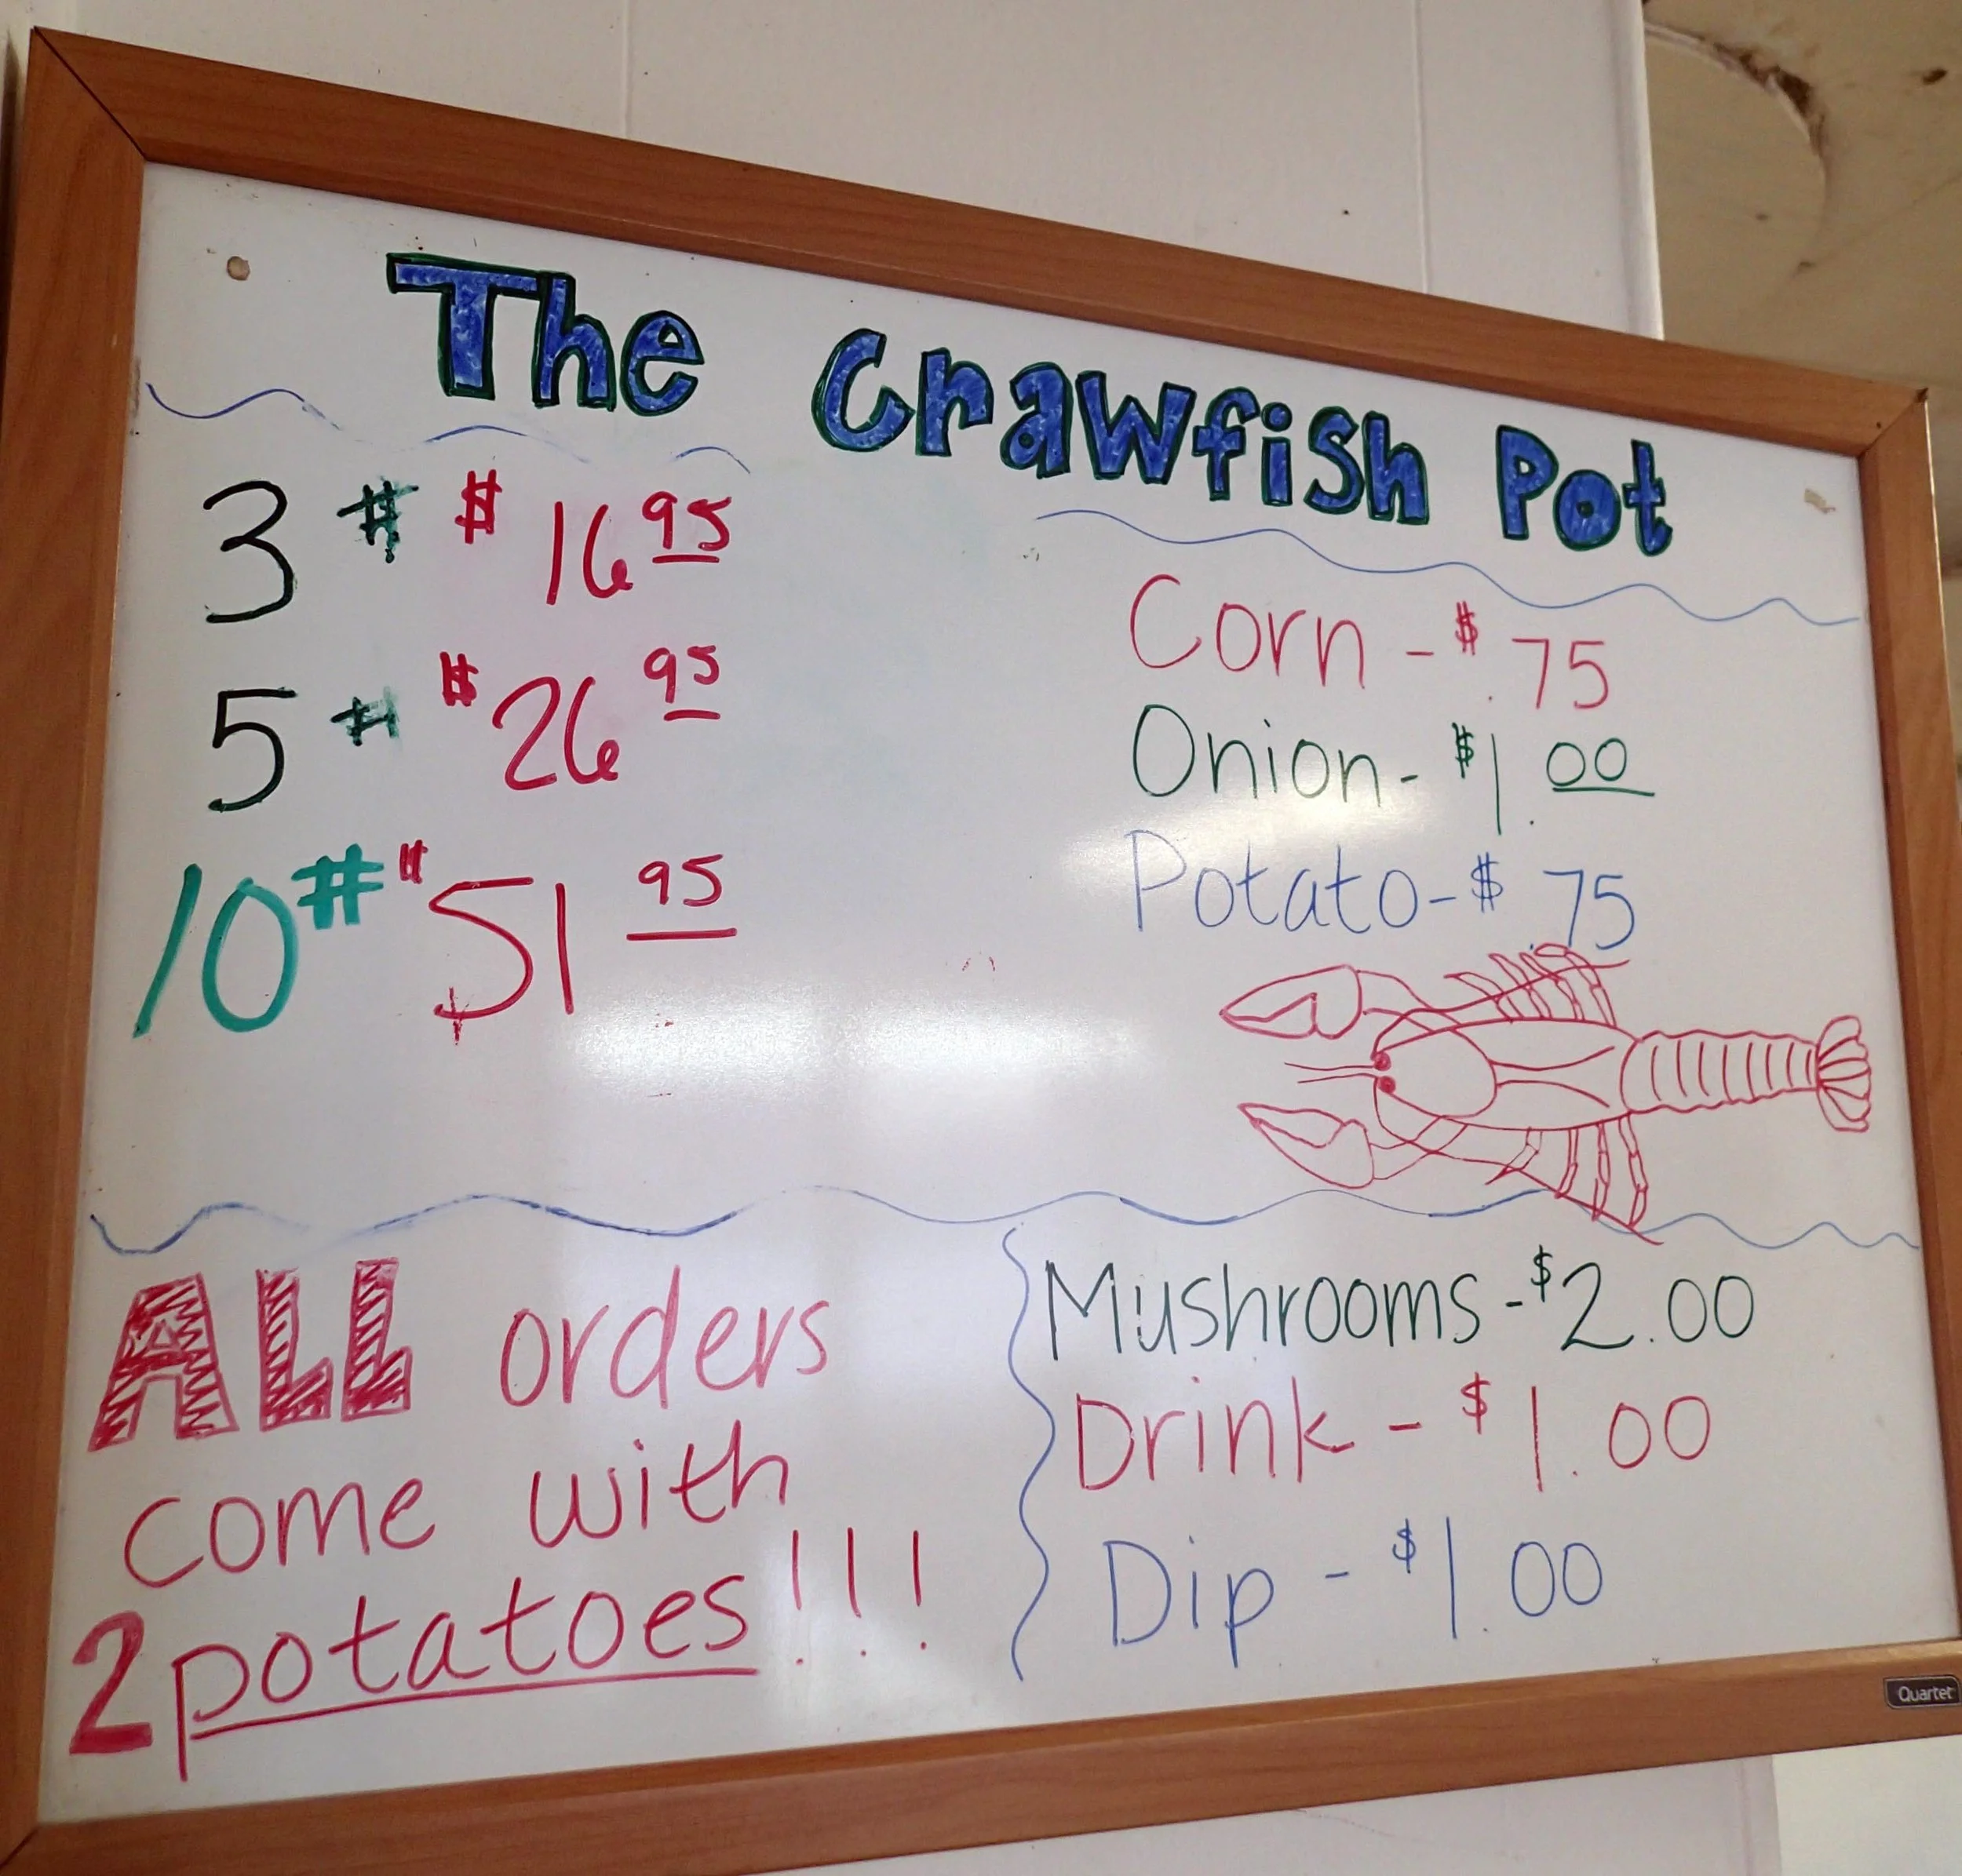 The Crawfish Pot
3 # $ 16 95
5 # $ 26 95
10 # $ 51 95
Corn - $ .75
Onion - $ 1.00
Potato - $ .75
ALL orders
come with
2 potatoes!!!
Mushrooms - $2.00
Drink - $1.00
Dip - $1.00
Quartet